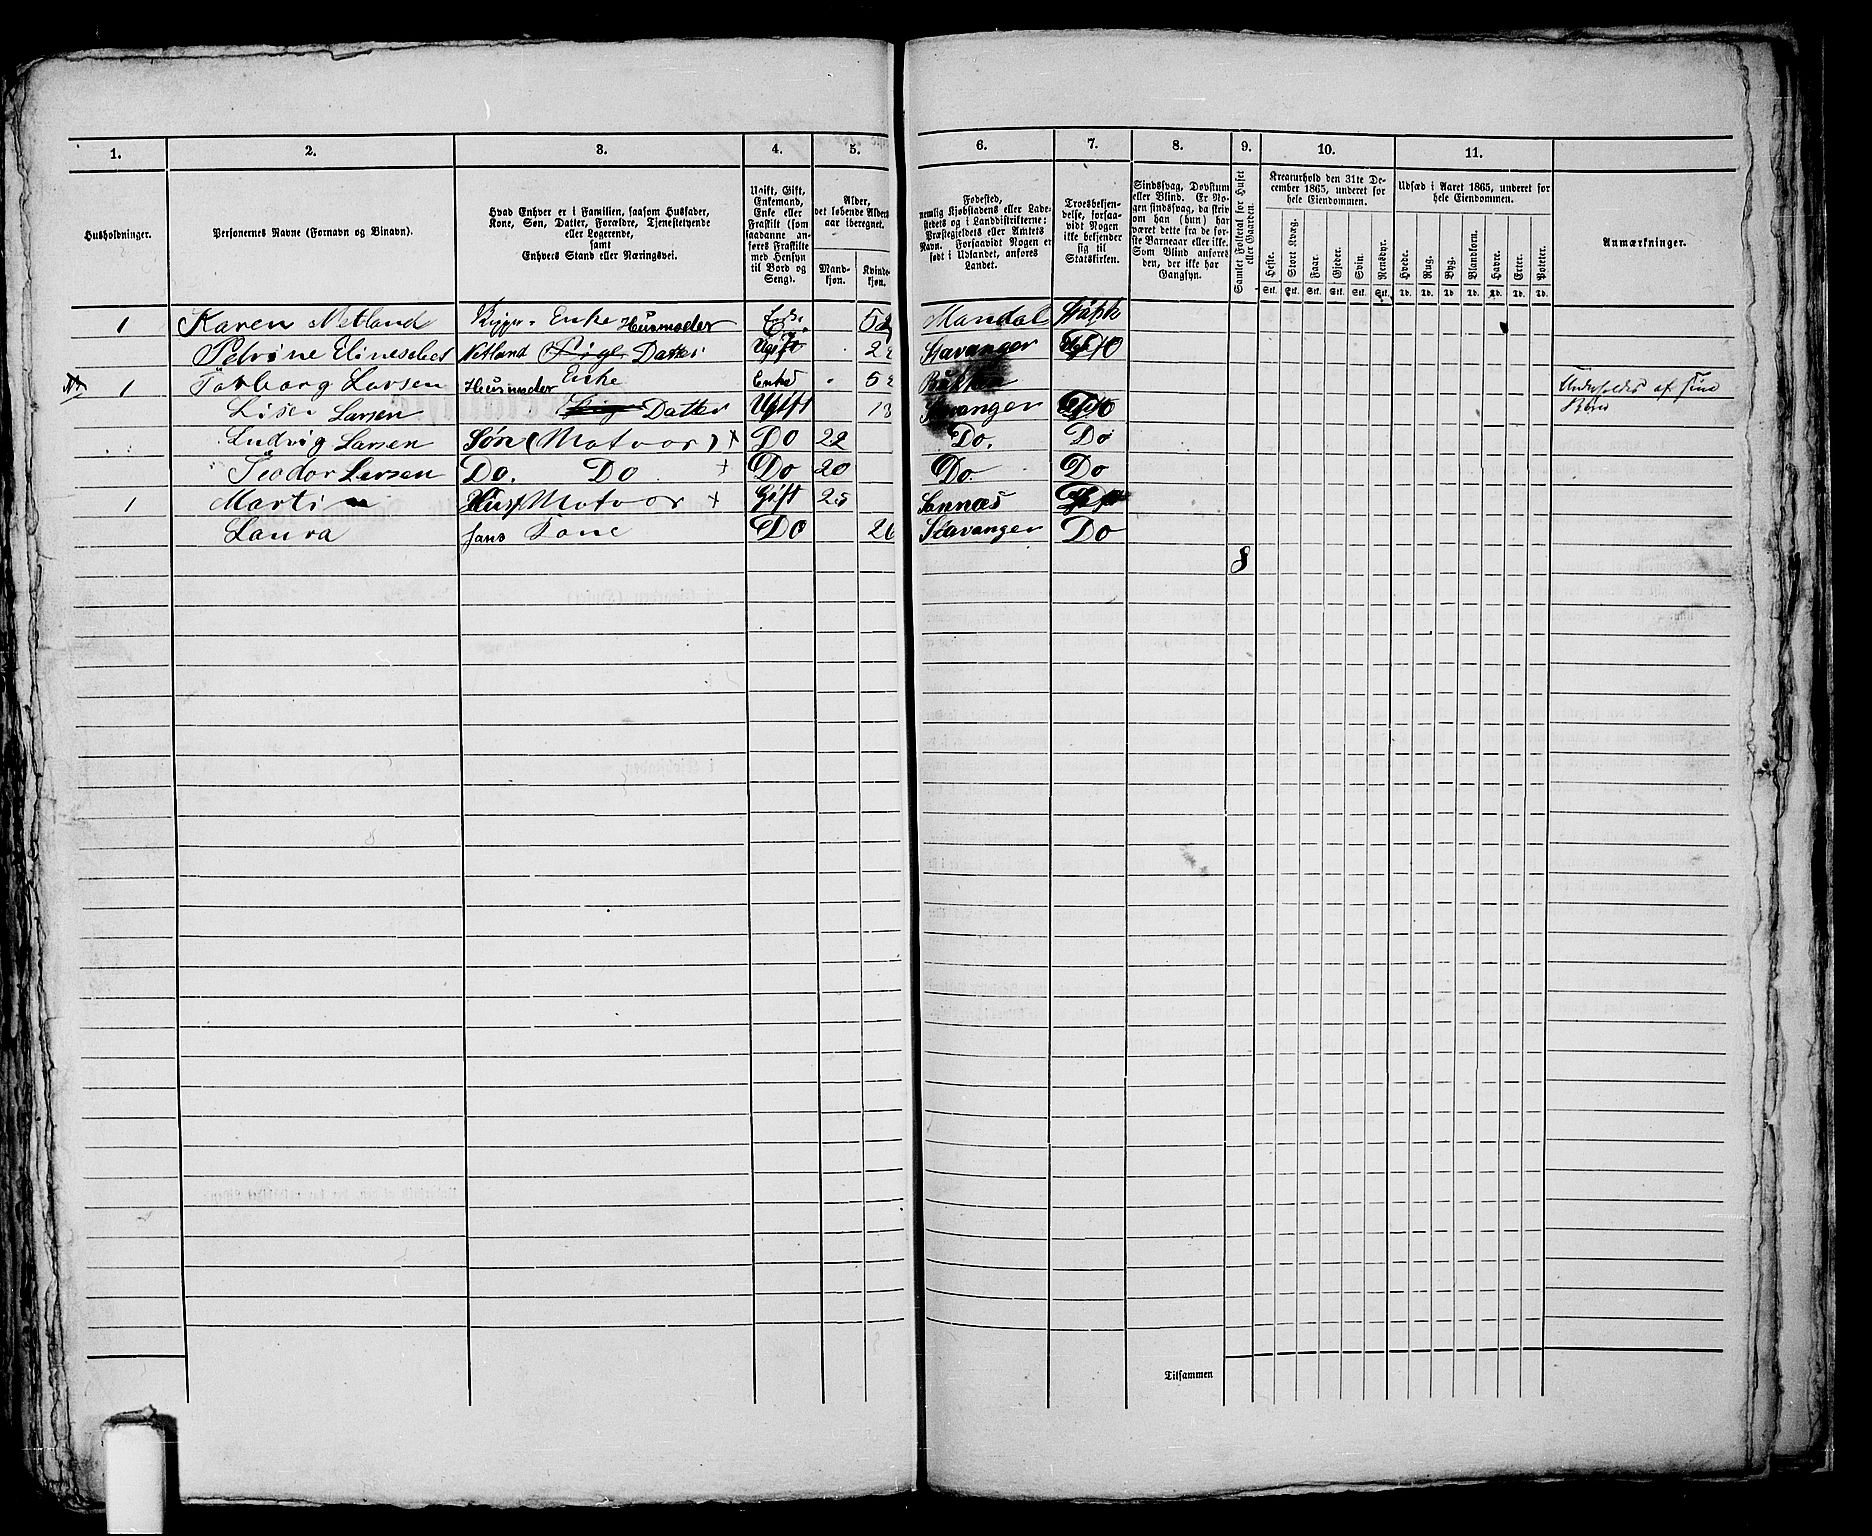 1. 2. 3. 4. 5. 6. 7. 8. 9. 10. 11.
Husholdninger.
Personernes Navne (Fornavn og Binavn).
Hvad Enhver er i Familien, saasom Husfader,
Kone, Søn, Datter, Forældre, Tjenestetyende
eller Logerende,
samt
Enhvers Stand eller Næringsvei.
Ugift, Gift,
Enkemand,
Enke eller
Fraskilt (som
saadanne an-
føres Fraskilte
med Hensyn
til Bord og
Seng).
Alder,
det løbende Alders-
aar iberegnet.
Mand-
kjøn.
Kvinde-
kjøn.
Fødested,
nemlig Kjøbstadens eller Lade-
stedets og i Landdistrikterne:
Præstegjeldets eller Amtets
Navn. Forsaavidt Nogen er
født i Udlandet, anføres
Landet.
Troesbekjen-
delse, forsaa-
vidt Nogen
ikke bekjender
sig til
Statskirken.
Sindssvag, Døvstum
eller Blind. Er No-
gen sindssvag, da skriv
om han (hun) har
været dette fra de før-
ste Barneaar eller ikke.
Som Blind anføres
den, der ikke har
Gangsyn.
Samlet Folketal for Huset
eller Gaarden.
Kreaturhold den 31te De-
cember 1865, underet for
hele Eiendommen.
Heste. Stort Kvæg. Faar. Gjeder. Svin. Rensdyr.
Stk. Stk. Stk. Stk. Stk. Stk.
Udsæd i Aaret 1865, underet for
hele Eiendommen.
Hvede. Rug. Byg. Blandkorn. Havre. Erter. Poteter.
Td. Td. Td. Td. Td. Td. Td.
Anmærkninger.
1 Karen Netland Enke Husmoder 52 Mandal
Petrine Netland Datter Ugift Stavanger
1 Larsen Husmoder Enke Enke
Underholdes af sine
Lise Larsen Datter Ugift 13 Stavanger
Børn
Ludvig Larsen Søn (Matros) + Do 22 Do. Do
Teodor Larsen Do. Do + Do 20 Do. Do
1 Martin Matros + Gift 25 Sannæs
Laura hans Kone Do 26 Stavanger Do
8
Tilsammen